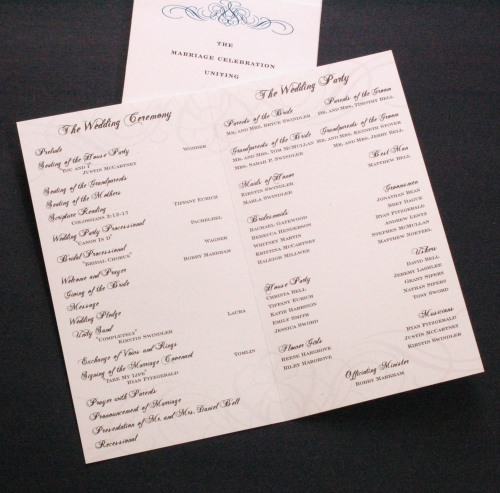 THE
MARRIAGE CELEBRATION
UNITING
The Wedding Ceremony
Prelude
Seating of the House Party WONDER
JUSTIN MCCARTNEY
Seating of the Grandparents
Seating of the Mothers
Scripture Reading TIFFANY EURICH
COLOSSIANS 3:12-17
Wedding Party Processional PACHELBEL
"CANON IN D"
Bridal Processional WAGNER
"BRIDAL CHORUS"
Welcome and Prayer BOBBY MARKHAM
Giving of the Bride
Message
Wedding Pledge
Unity Sand LAURA
"COMPLETELY"
KIRSTIN SWINDLER
Exchange of Vows and Rings
Signing of the Marriage Covenant TOMLIN
"TAKE MY LIFE"
RYAN FITZGERALD
Prayer with Parents
Pronouncement of Marriage
Presentation of Mr. and Mrs. Daniel Bell
Recessional
The Wedding Party
Parents of the Bride
MR. AND MRS. BRYCE SWINDLER
Parents of the Groom
MR. AND MRS. TIMOTHY BELL
Grandparents of the Bride
MR. AND MRS. TOM MCMULLAN
MRS. SARAH P. SWINDLER
Grandparents of the Groom
MR. AND MRS. KENNETH STOVER
MR. AND MRS. JERRY BELL
Maids of Honor
KIRSTIN SWINDLER
MARLA SWINDLER
Best Man
MATTHEW BELL
Bridesmaids
RACHAEL GATEWOOD
REBECCA HENDERSON
WHITNEY MARTIN
KRISTINA MARTINEZ
HALEIGH MILNER
Groomsmen
JONATHAN BEAN
BRET HAGUE
RYAN FITZGERALD
ANDREW LENTZ
STEPHEN MCMULLAN
MATTHEW NOETZEL
House Party
CHRISTA BELL
TIFFANY EURICH
KATIE HARRISON
EMILY SMITH
JESSICA SWORD
Ushers
DAVID BELL
JEREMY LASHLEE
GRANT SIPERS
NATHAN SIPERS
TONY SWORD
Flower Girls
REESE HARGROVE
RILEY HARGROVE
Musicians
RYAN FITZGERALD
JUSTIN MCCARTNEY
KIRSTIN SWINDLER
Officiating Minister
BOBBY MARKHAM